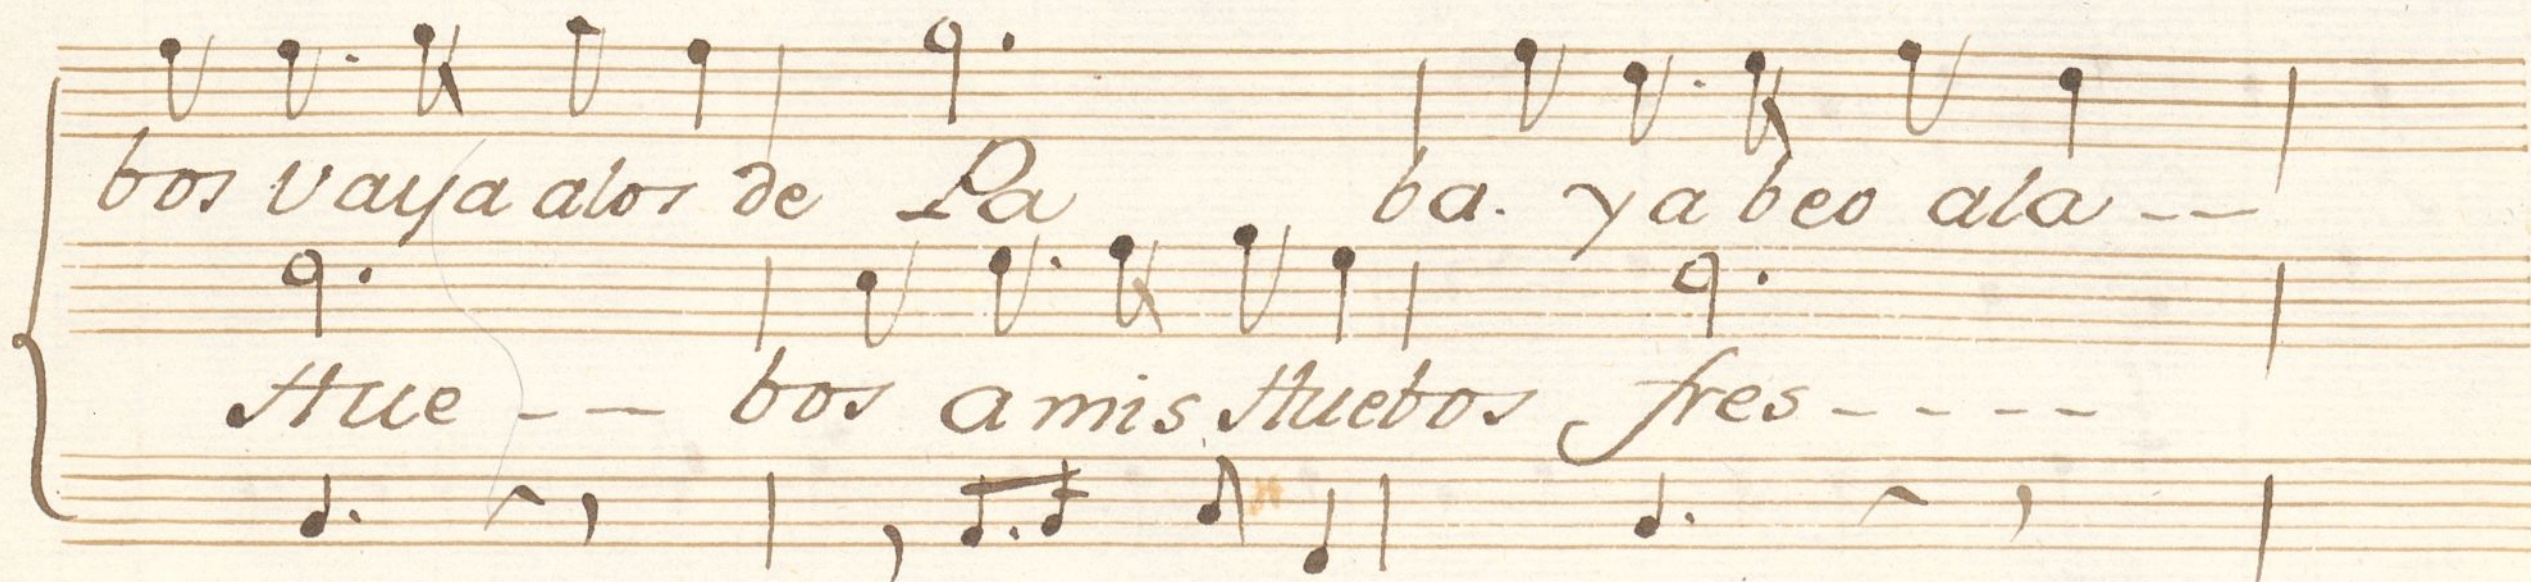 bos vaya alos de Pa ba. ya beo ala--
Hue-- bos a mis Huebos fres----